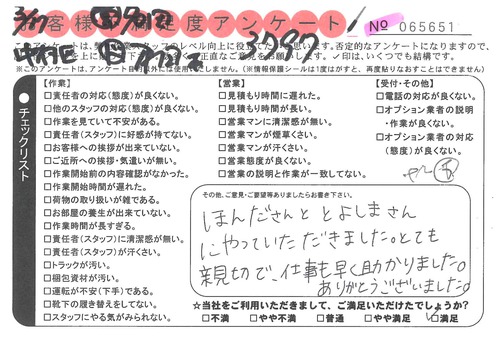 お客様満足度アンケート
No 065651
3787
※このアンケートは、アンケート目的以外には使用いたしません。(※情報保護シールは1度はがすと、再度貼りなおすことはできません)
チェックリスト
【作業】
□責任者の対応(態度)が良くない。
□他のスタッフの対応(態度)が良くない。
□作業を見ていて不安がある。
□責任者(スタッフ)に好感が持てない。
□お客様への挨拶が出来ていない。
□ご近所への挨拶・気遣いが無い。
□作業開始前の内容確認がなかった。
□作業開始時間が遅れた。
□荷物の取り扱いが雑である。
□お部屋の養生が出来ていない。
□作業時間が長すぎる。
□責任者(スタッフ)に清潔感が無い。
□責任者(スタッフ)が汗くさい。
□トラックが汚い。
□梱包資材が汚い。
□運転が不安(下手)である。
□靴下の履き替えをしてない。
□スタッフにやる気がみられない。
【営業】
□見積もり時間に遅れた。
□見積もり時間が長い。
□営業マンに清潔感が無い。
□営業マンが煙草くさい。
□営業マンが汗くさい。
□営業態度が良くない。
□営業の説明と作業が一致してない。
【受付・その他】
□電話の対応が良くない。
□オプション業者の説明
・作業が良くない。
□オプション業者の対応
(態度)が良くない。
その他、ご意見・ご要望等ありましたらお書き下さい。
ほんださんと とよしまさん
にやっていただきました。とても
親切で、仕事も早く助かりました。
ありがとうございました。
☆当社をご利用いただきまして、ご満足いただけたでしょうか?
□不満 □やや不満 □普通 □やや満足 □満足